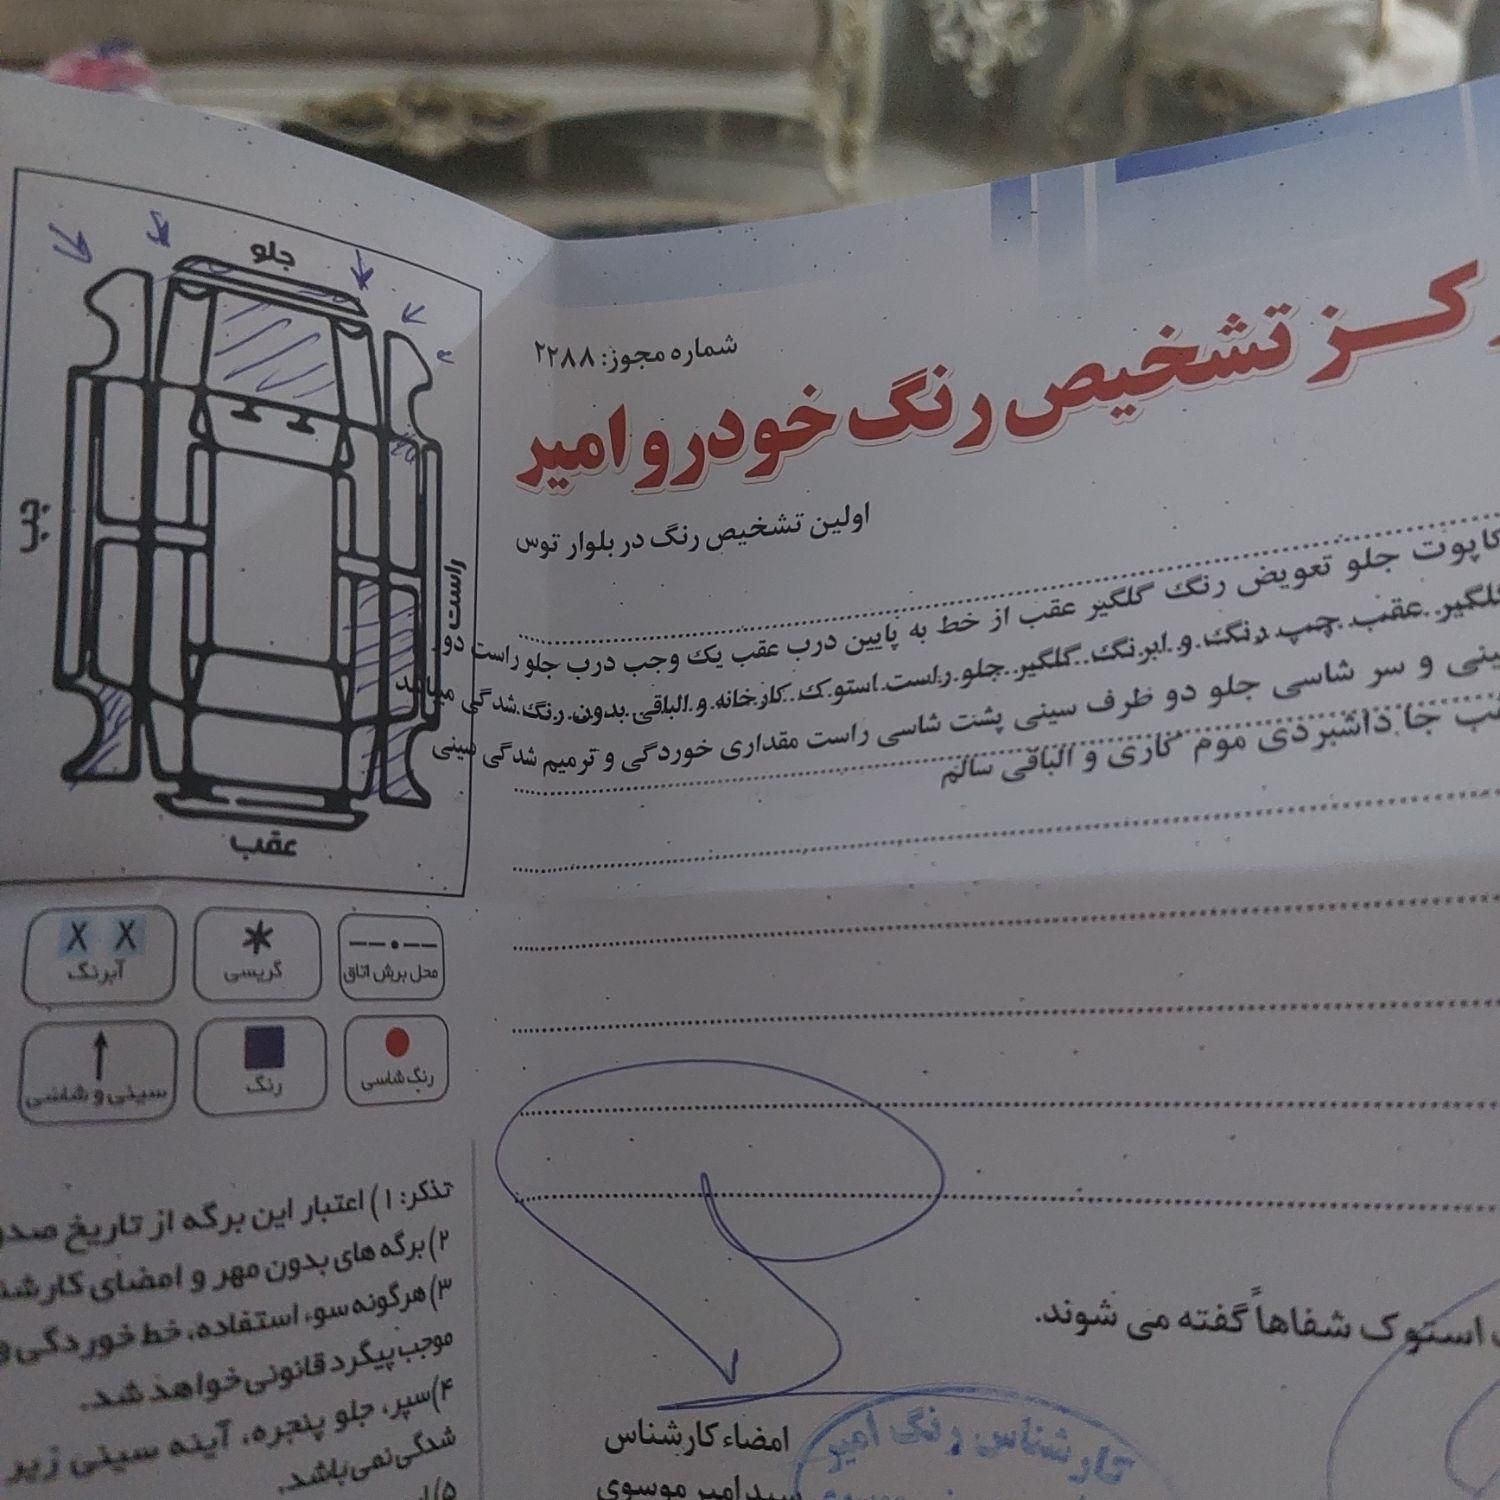 جلو
چپ
راست
عقب
شماره مجوز: ۲۲۸۸
تشخیص رنگ خودرو امیر
اولین تشخیص رنگ در بلوار توس
کاپوت جلو تعویض رنگ گلگیر عقب از خط به پایین درب عقب یک وجب درب جلو راست دور
گلگیر عقب چپ رنگ و ابرنگ گلگیر جلو راست استوک کارخانه و الباقی بدون رنگ شدگی میباشد
سینی و سر شاسی جلو دو طرف سینی پشت شاسی راست مقداری خوردگی و ترمیم شدگی سینی
جا داشبردی موم کاری و الباقی سالم
X X
آبرنگ
گریسی
محل برش اتاق
سینی و شاسی
رنگ
رنگ شاسی
تذکر: ۱) اعتبار این برگه از تاریخ
۲) برگه های بدون مهر و امضای
۳) هرگونه سو، استفاده، خط خوردگی و
موجب پیگرد قانونی خواهد شد.
۴) سپر، جلو پنجره، آینه سینی زیر
شدگی نمی باشد.
۵)
استوک شفاهاً گفته می شوند.
امضاء کارشناس
سید امیر موسوی
کارشناس رنگ امیر